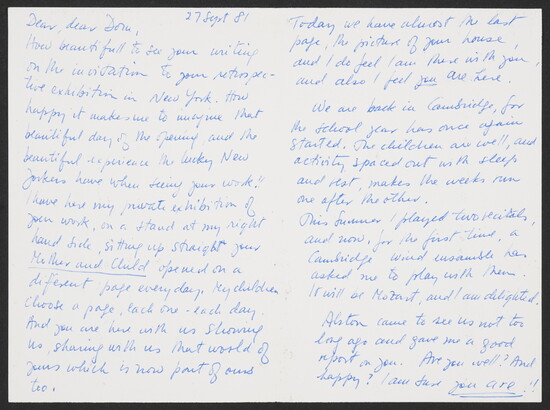 27 Sept 81
Dear, dear Dom,
How beautiful to see your writing
on the invitation to your retrospec-
tive exhibition in New York. How
happy it makes me to imagine that
beautiful day of the opening and the
beautiful experience the lucky New
Yorkers have when seeing your work!!
I have here my private exhibition of
your work, on a stand at my right
hand side, sitting up straight your
Mother and Child opened on a
different page everyday. My children
choose a page, each one - each day.
And you are here with us showing
us, sharing with us that world of
yours which is now part of ours
too.
Today we have almost the last
page, the picture of your house,
and I do feel I am there with you,
and also I feel you are here.
We are back in Cambridge, for
the school year has once again
started. The children are well, and
activity spaced out with sleep
and rest, makes the weeks run
one after the other.
This Summer I played two recitals,
and now, for the first time, a
Cambridge wind ensamble has
asked me to play with them.
It will be Mozart, and I am delighted.
Alston came to see us not too
long ago and gave me a good
report on you. Are you well? And
happy? I am sure you are!!